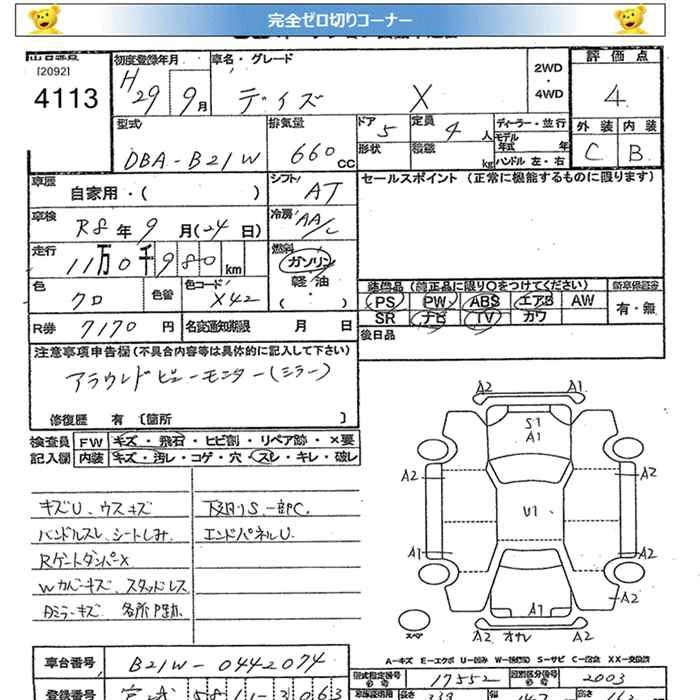 完全ゼロ切りコーナー
[2092]
4113
初度登録年月
H29年 9月
車名・グレード
デイズ X
2WD
・
4WD
評価点
4
型式
DBA-B21W
排気量
660cc
ドア
5
形状
定員
4人
積載
kg
ディーラー・並行
モデル
年式 年
ハンドル 左・右
外装 内装
C B
車歴
自家用・( )
シフト
AT
セールスポイント (正常に機能するものに限ります)
車検
R8年 9月(24日)
冷房
AA/C
走行
11万0千980km
燃料
ガソリン
軽油
・( )
色
クロ
色替
色コード
X42
装備品 (純正品に限り○をつけてください)
PS PW ABS エアB AW
SR ナビ TV カワ
新車保証書
有・無
R券 7170円
名変通知期限 月 日
後日品
注意事項申告欄(不具合内容等は具体的に記入して下さい)
アラウンドビューモニター(ミラー)
修復歴 有 〔箇所 〕
検査員
記入欄
FW キズ・飛石・ヒビ割・リペア跡・×要
内装 キズ・汚レ・コゲ・穴・スレ・キレ・破レ
キズU、ウスキズ
ハンドルスレ、シートしみ
RゲートダンパーX
Wカバーキズ、スタッドレス
Dミラーキズ 各所P跡
下廻りS、一部C.
エンドパネルU
A2 A1
S1
A1
A2 A2
U1
A1 A2
A1 A2
スペア
A2 オサレ A2
A-キズ E-エクボ U-凹み W-補修跡 S-サビ C-腐食 XX-交換済
車台番号
B21W-0442074
型式指定番号
17552
類別区分番号
2003
登録番号